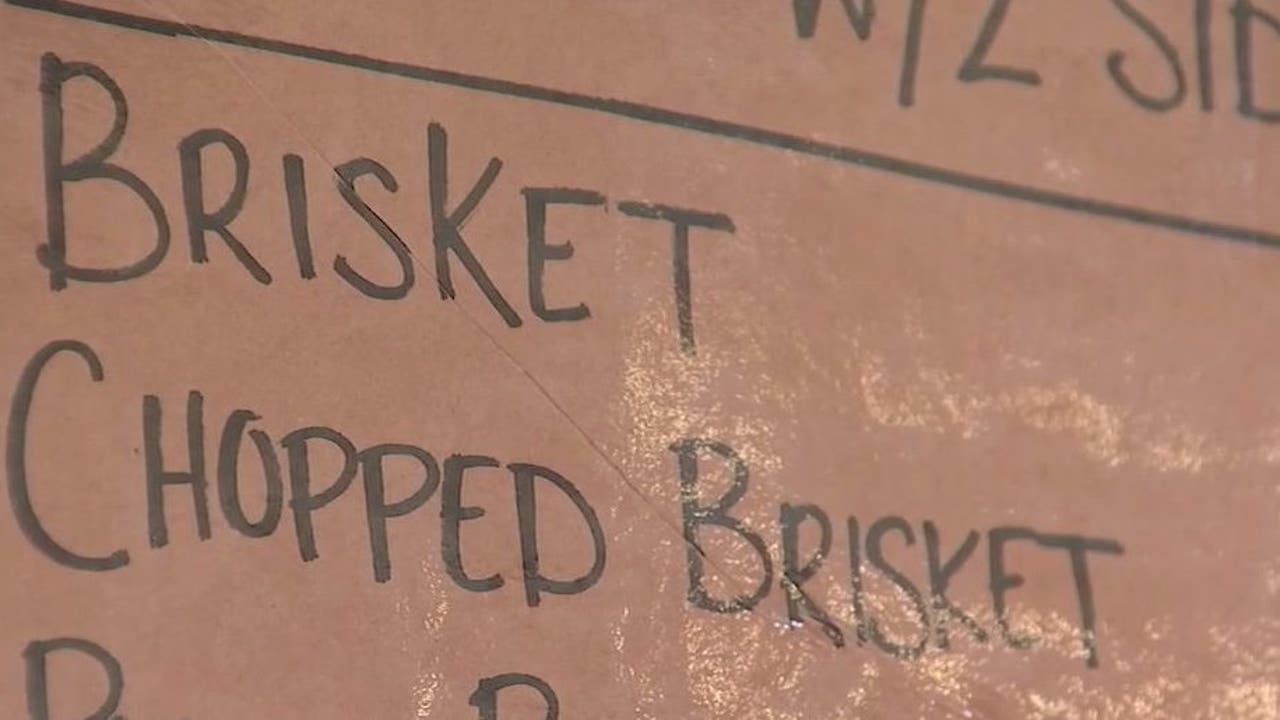 W/2 SID
BRISKET
CHOPPED BRISKET